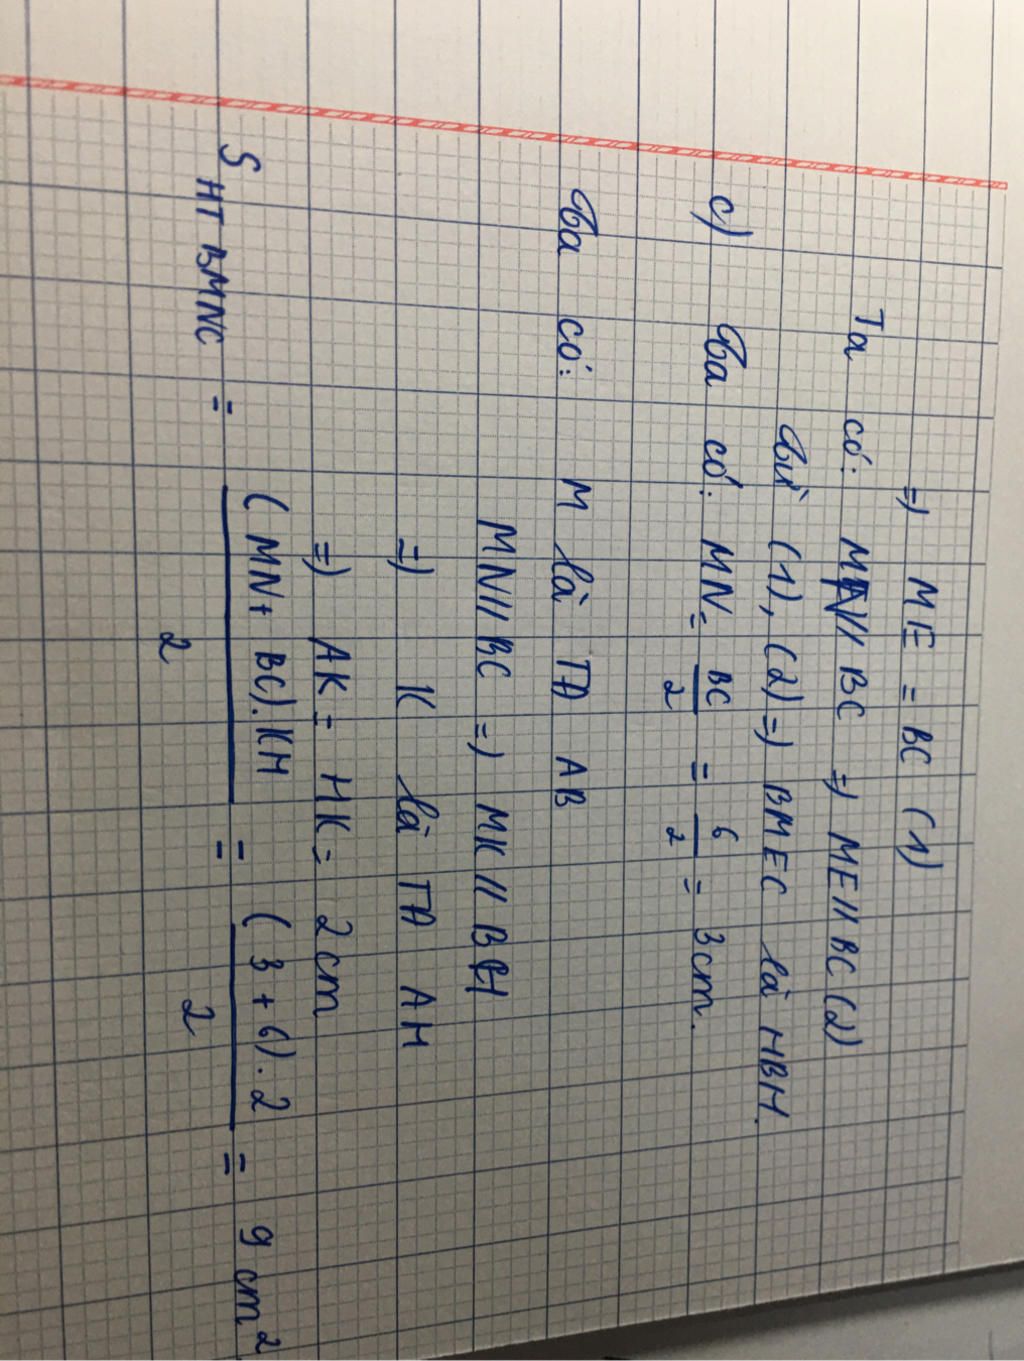 =) ME = BC (1)
Ta có: MN // BC =) ME // BC (2)
Từ (1), (2) =) BMEC là HBH.
c) Ta có: MN = BC/2 = 6/2 = 3cm.
Ta có: M là TĐ AB
MN // BC =) MK // BH
=) K là TĐ AH
=) AK = HK = 2cm
S HT BMNC = (MN + BC).KH / 2 = (3 + 6).2 / 2 = 9 cm²